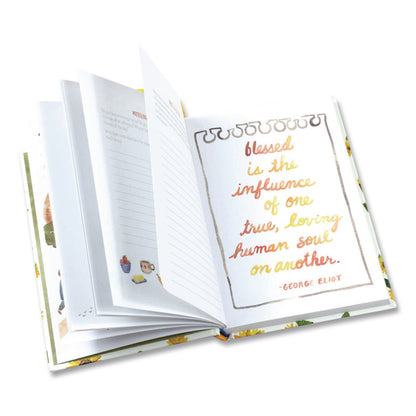 blessed
is the
influence
of one
true, loving
human soul
on another.
-GEORGE ELIOT